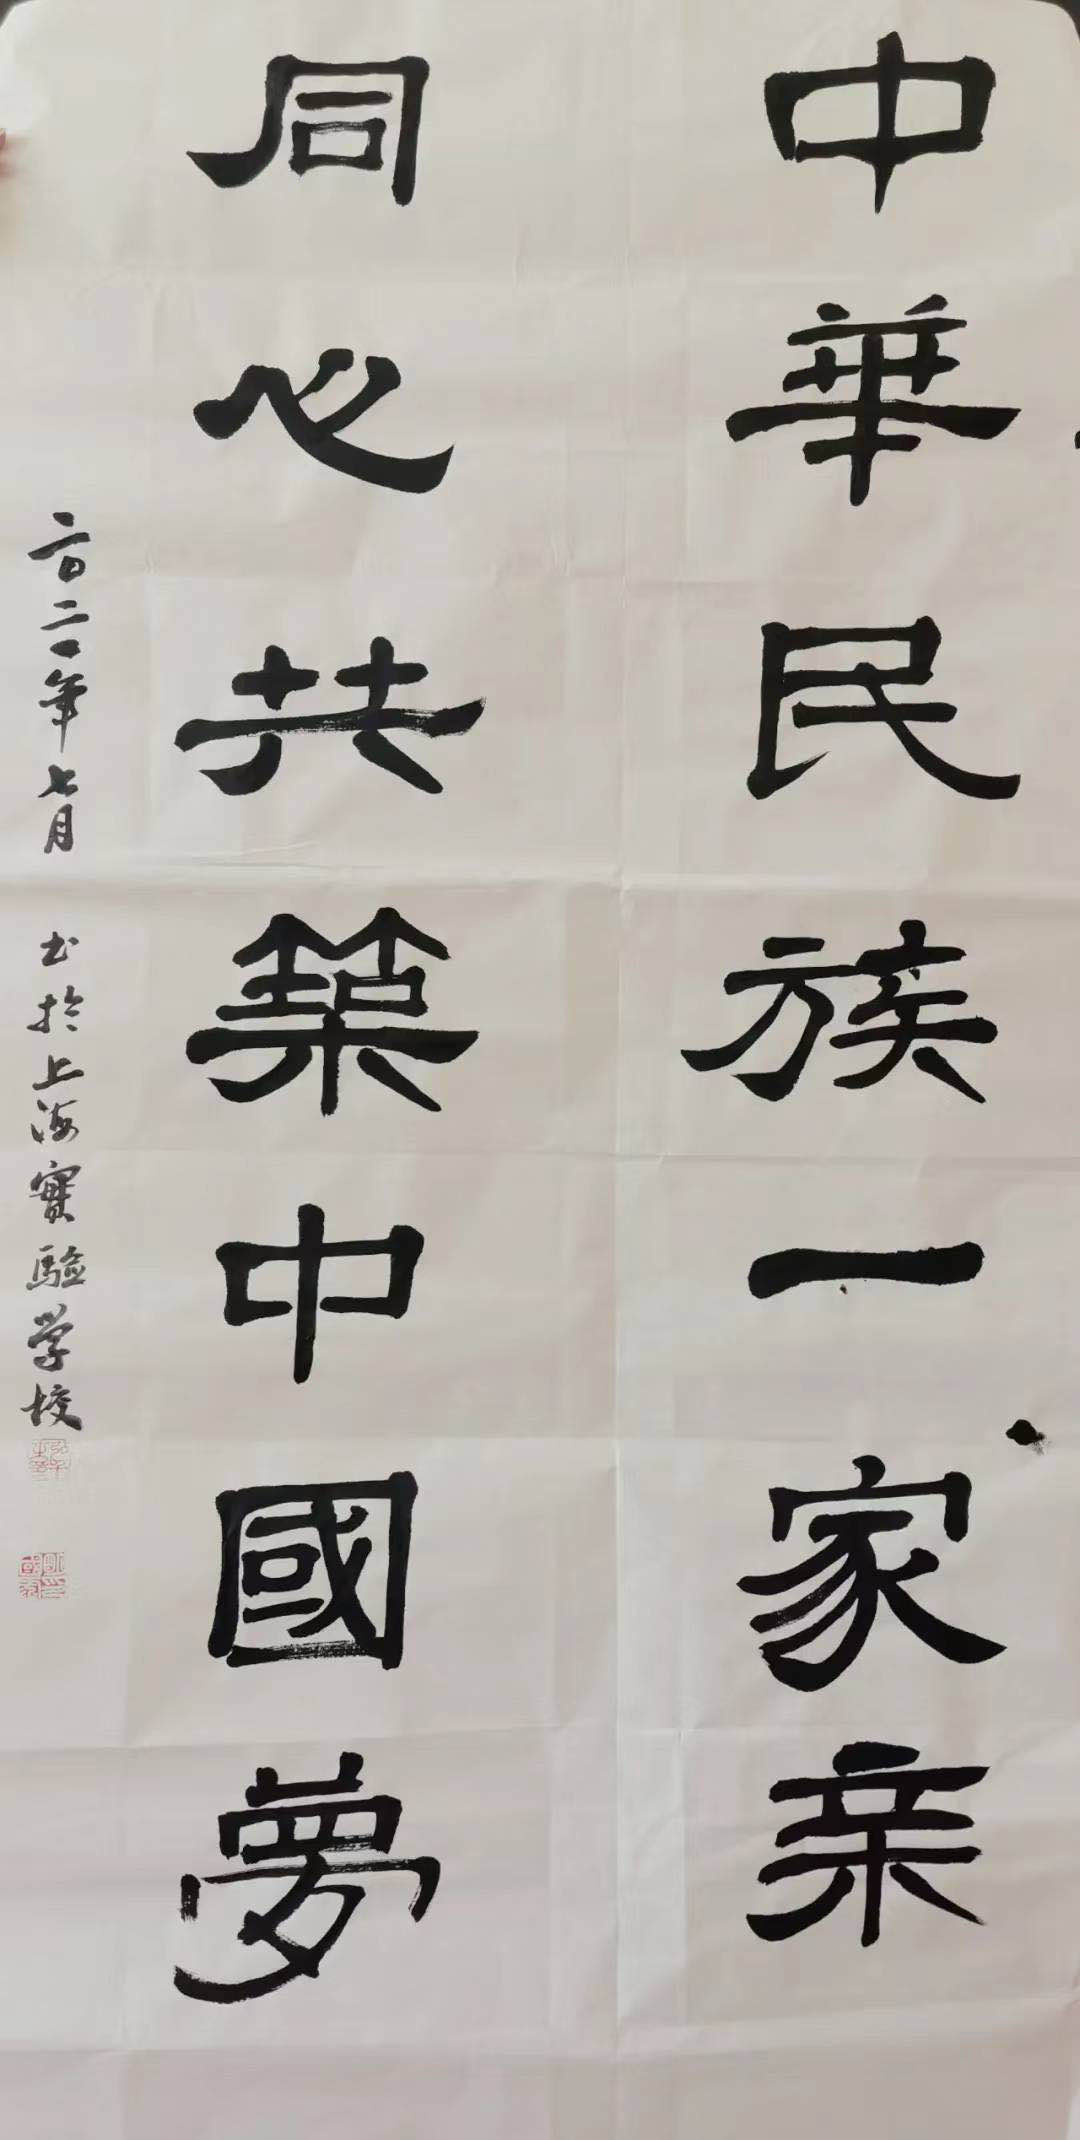 中華民族一家亲
同心共築中國夢
二〇二一年七月 书於上海實驗学校